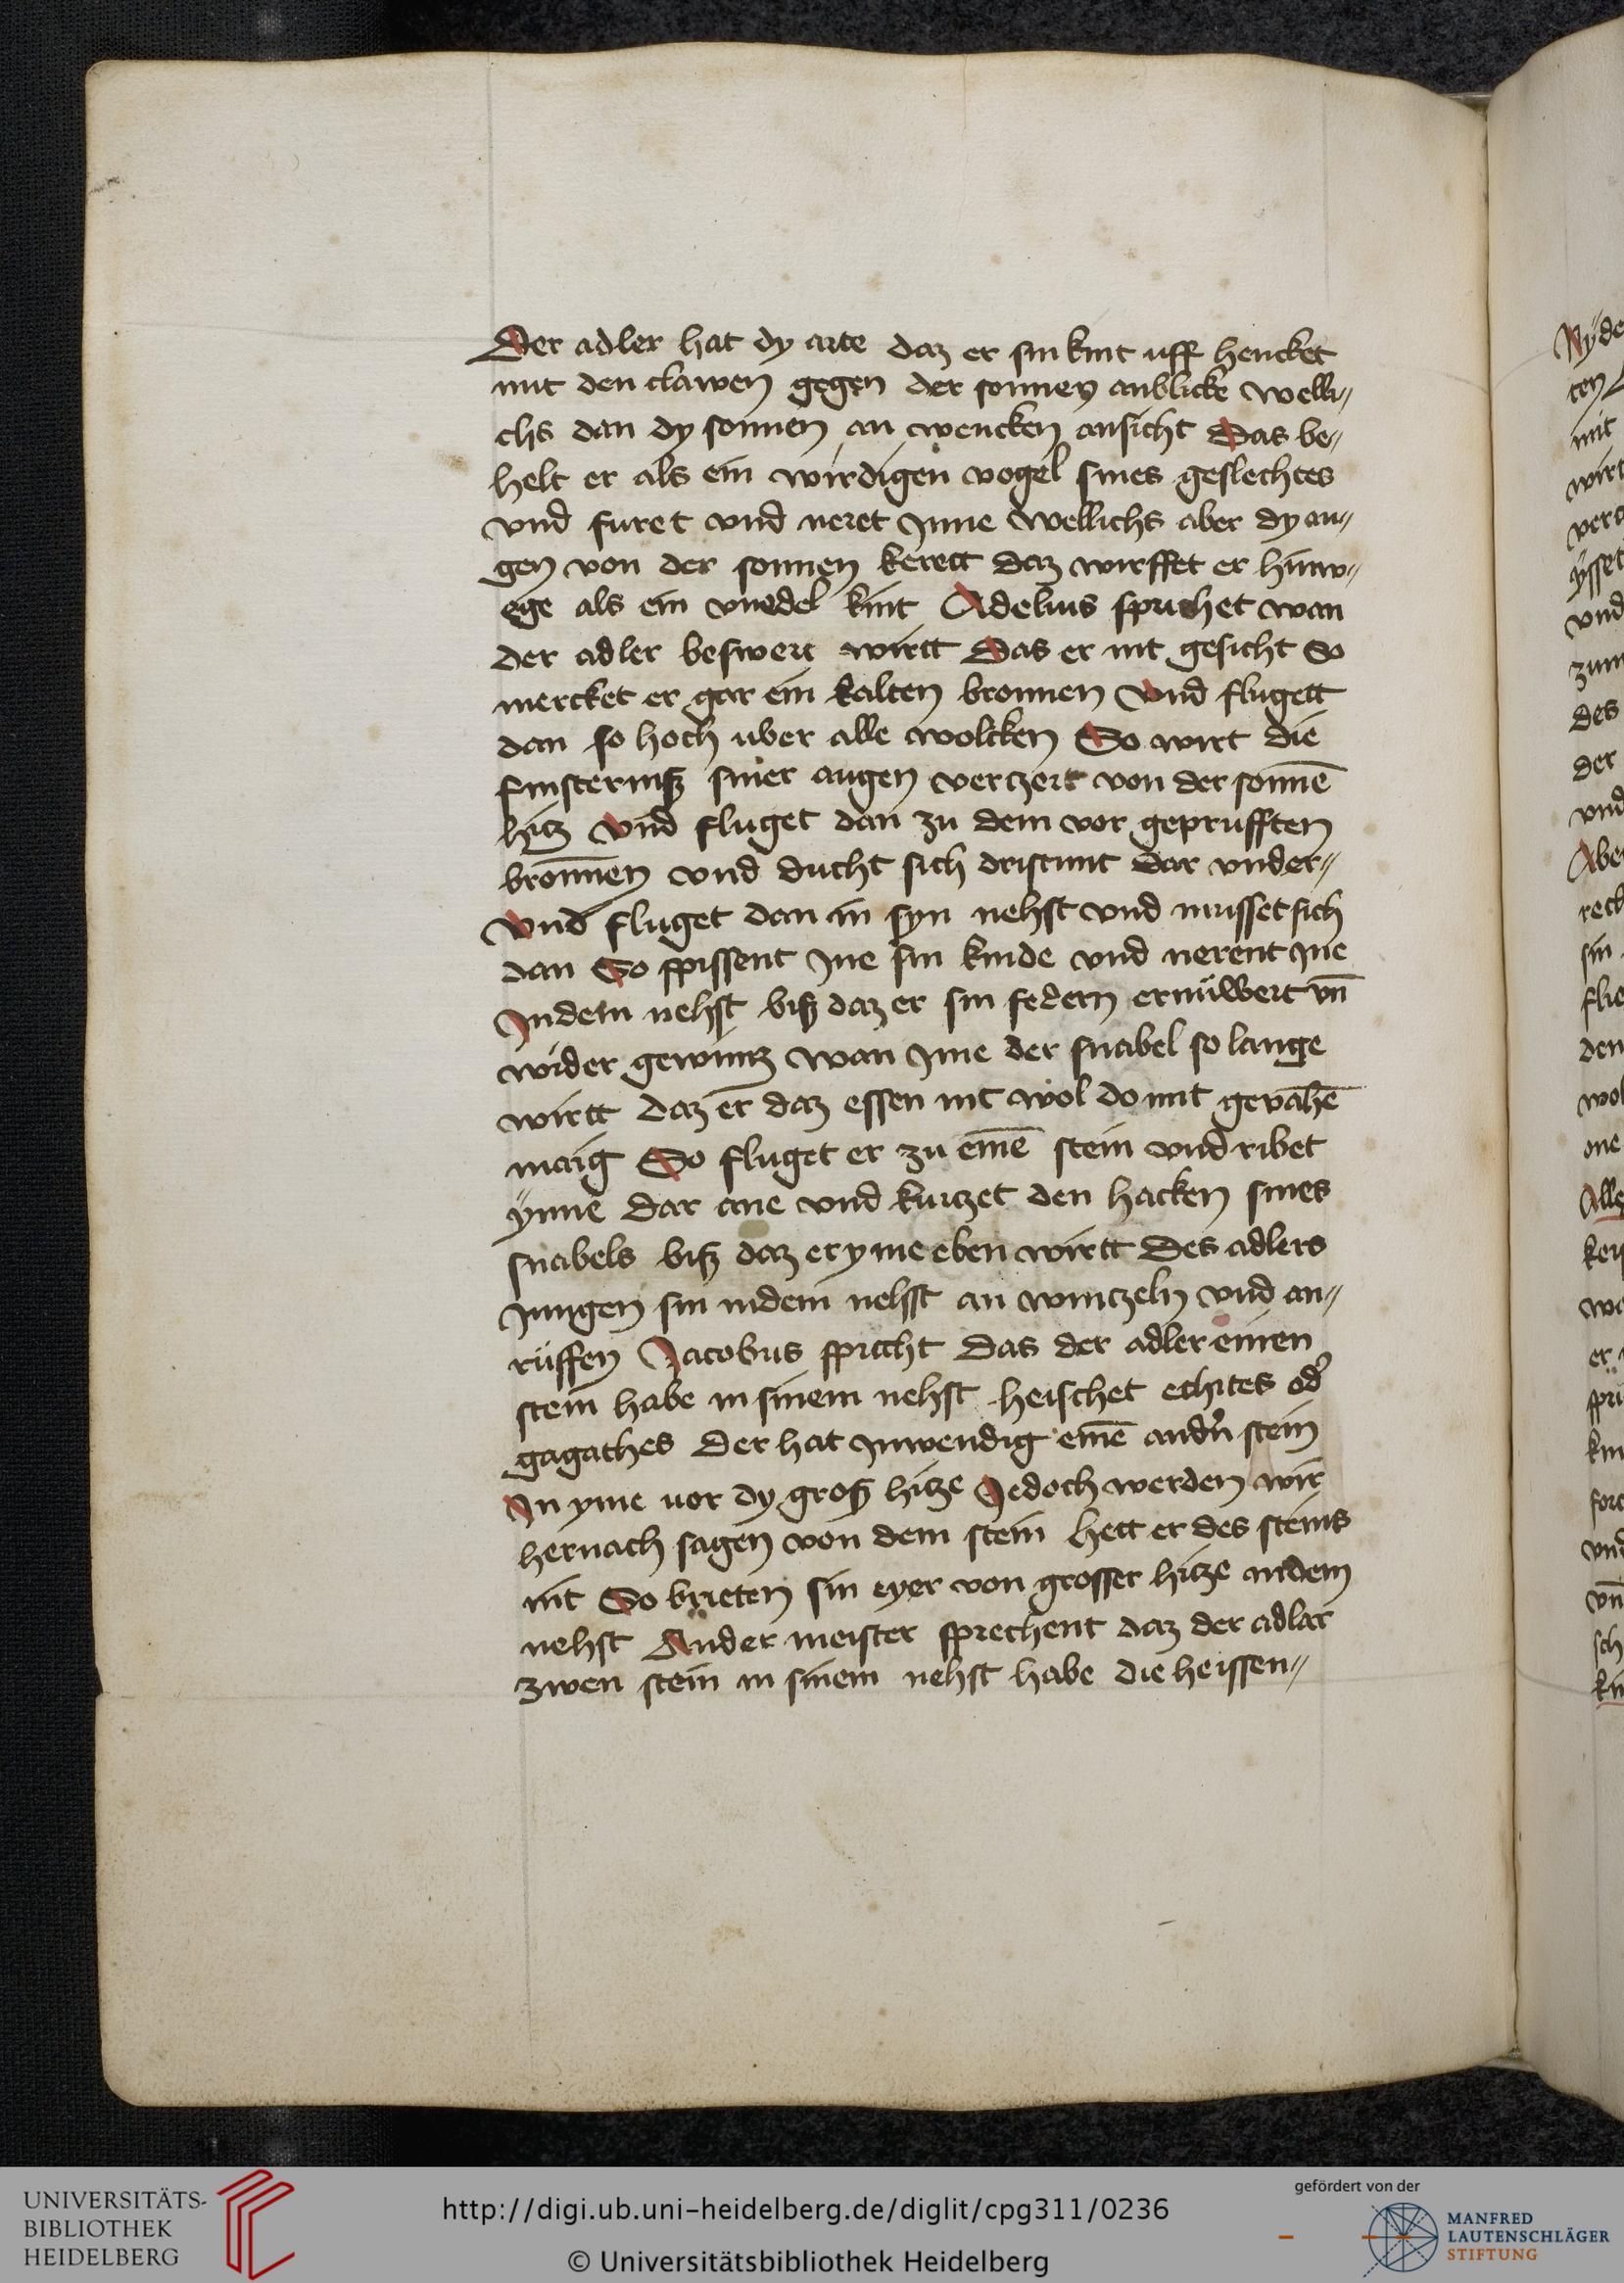 Der adler hat dy arte daz er sin kint uff hencket
mit den clawen gegen der sonnen anblicke welli„
chs dan dy sonnen an wencken ansicht Das be„
helt er als ein wirdigen vogel sines geslechtes
vnd furet vnd neret Jnne wellichs aber dy au„
gen von der sonnen kerett daz wirffet er hinw„
ege als ein vnedel kint Adelius sprichet wan
der adler beswert wirtt Das er nit gesicht So
mercket er gar ein kalten bronnen Vnd flugett
dan so hoch uber alle wolcken So wirt die
finsterniß siner augen verczert von der sonnē
hitz Vnd fluget dan zu dem vor geprufften
bronnen vnd ducht sich dristunt dar vnder„
Vnd fluget dan in syn nehst vnd musset sich
dan So spissent Jne sin kinde vnd nerent Jne
Jndem nehst biß daz er sin federn ernüwert vn̄
wider gewintz wan Jme der snabel so lange
wirtt daz er daz essen nit wol do mit gevahē
maig So fluget er zu einē stein vnd ribet
ynne dar ane vnd kurtzet den hacken sines
snabels biß daz er yme eben wirtt Des adlers
Jungen sin indem nehst an wintzeln vnd an„
rüffen Jacobus spricht Das der adler einen
stein habe in sinem nehst heischet echites od'
gagathes Der hat Jnwendig einē and'n stein
Jn yme vor dy groß hitze Jedoch werden wir
hernach sagen von dem stein Hett er des steins
nit So brieten sin eyer von grosser hitze indem
nehst Ander meister sprechent daz der adlar
zwen stein in sinem nehst habe die heissen„
UNIVERSITÄTS-
BIBLIOTHEK
HEIDELBERG
http://digi.ub.uni-heidelberg.de/diglit/cpg311/0236
© Universitätsbibliothek Heidelberg
gefördert von der
MANFRED
LAUTENSCHLÄGER
STIFTUNG